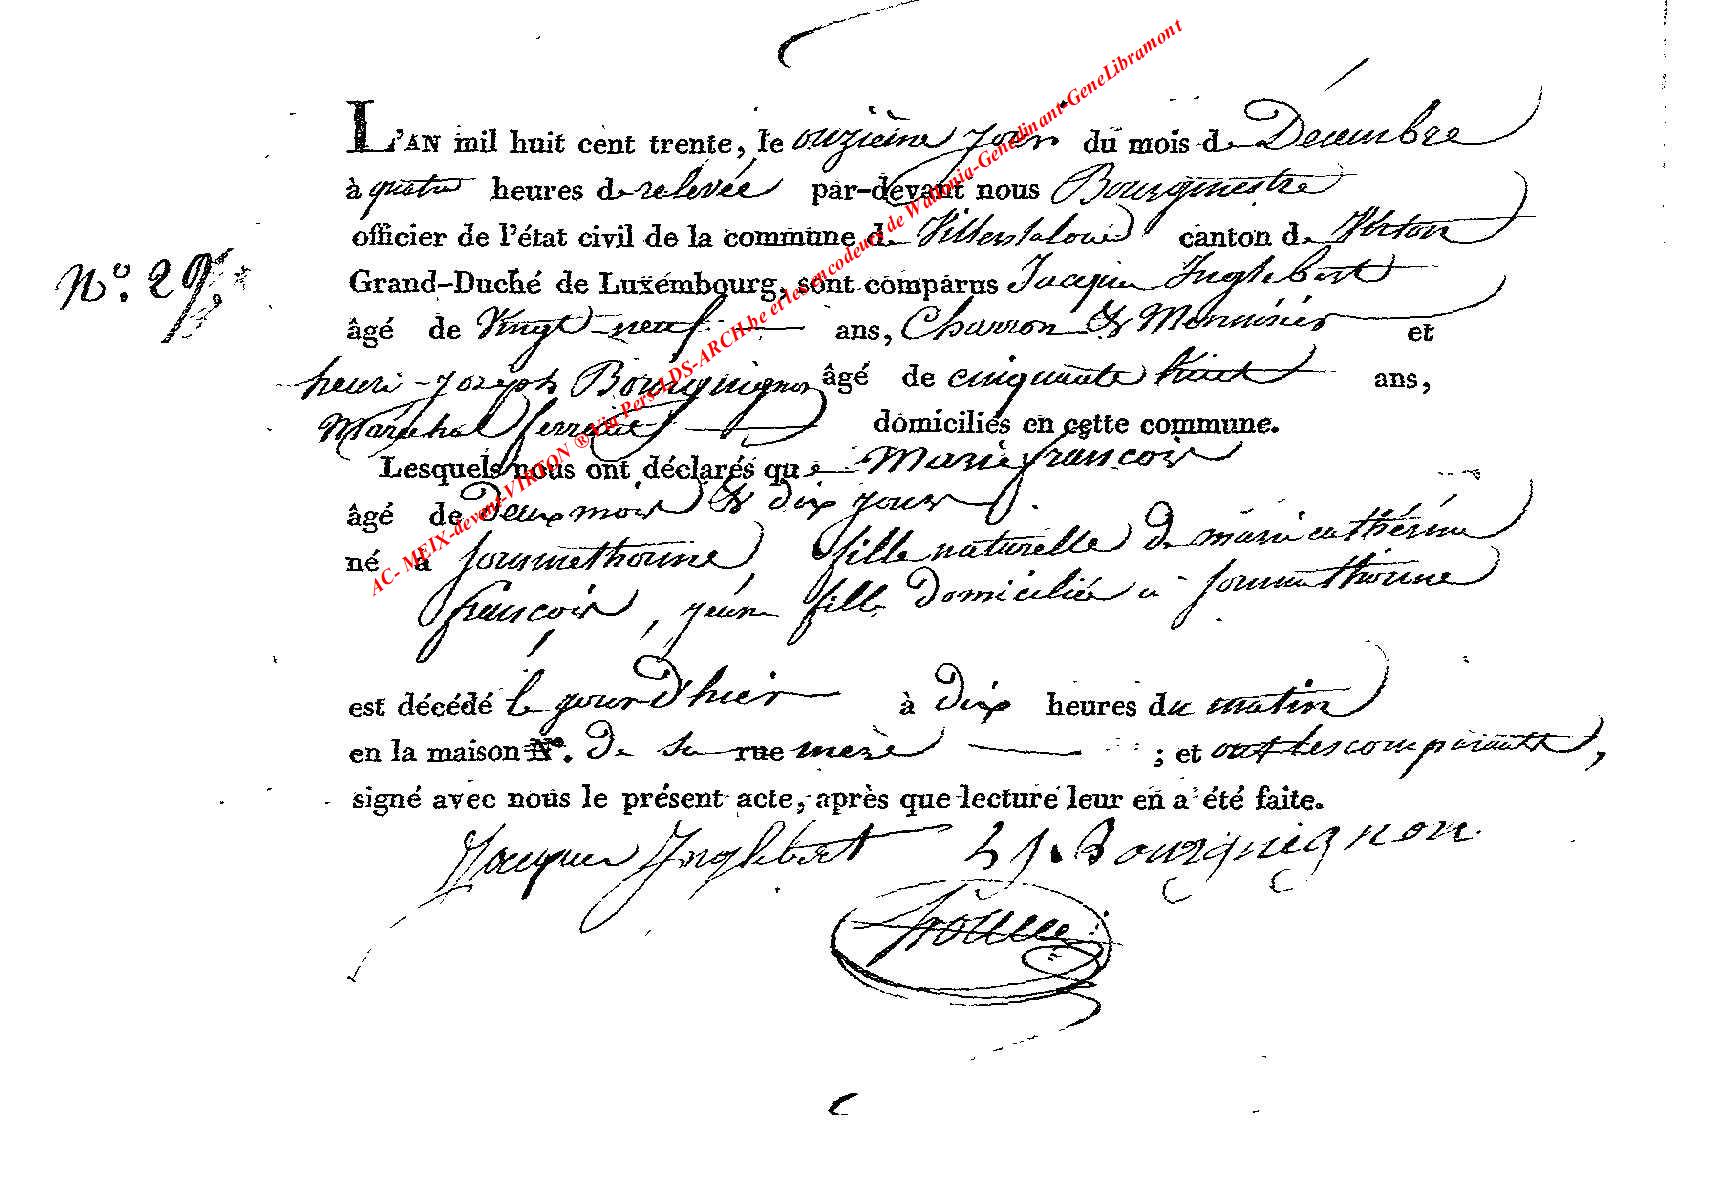 L'AN mil huit cent trente, le onzième jour du mois de Décembre
à quatre heures de relevée par-devant nous Bourgmestre
officier de l'état civil de la commune de Villers la loue canton de Virton
N°. 29.
Grand-Duché de Luxémbourg, sont comparus Jacques Inglebert
âgé de Vingt neuf ans, Charron & Menuisier et
henri-Joseph Bourguignon âgé de cinquante huit ans,
Maréchal ferrant domiciliés en cette commune.
Lesquels nous ont déclarés que Marie françois
âgé de Deux mois & dix jours
né à Sommethonne fille naturelle de marie cathérine
françois, jeune fille domiciliée à Sommethonne
est décédé le jour d'hier à dix heures du matin
en la maison N°. de sa rue mere ; et ont les comparants,
signé avec nous le présent acte, après que lecture leur en a été faite.
Jacques Inglebert h j. Bourguignon
AC- MEIX-devant-VIRTON ® Via Pers-LDS-ARCH.be et les encodeurs de Wallonia-Genedinant-GeneLibramont